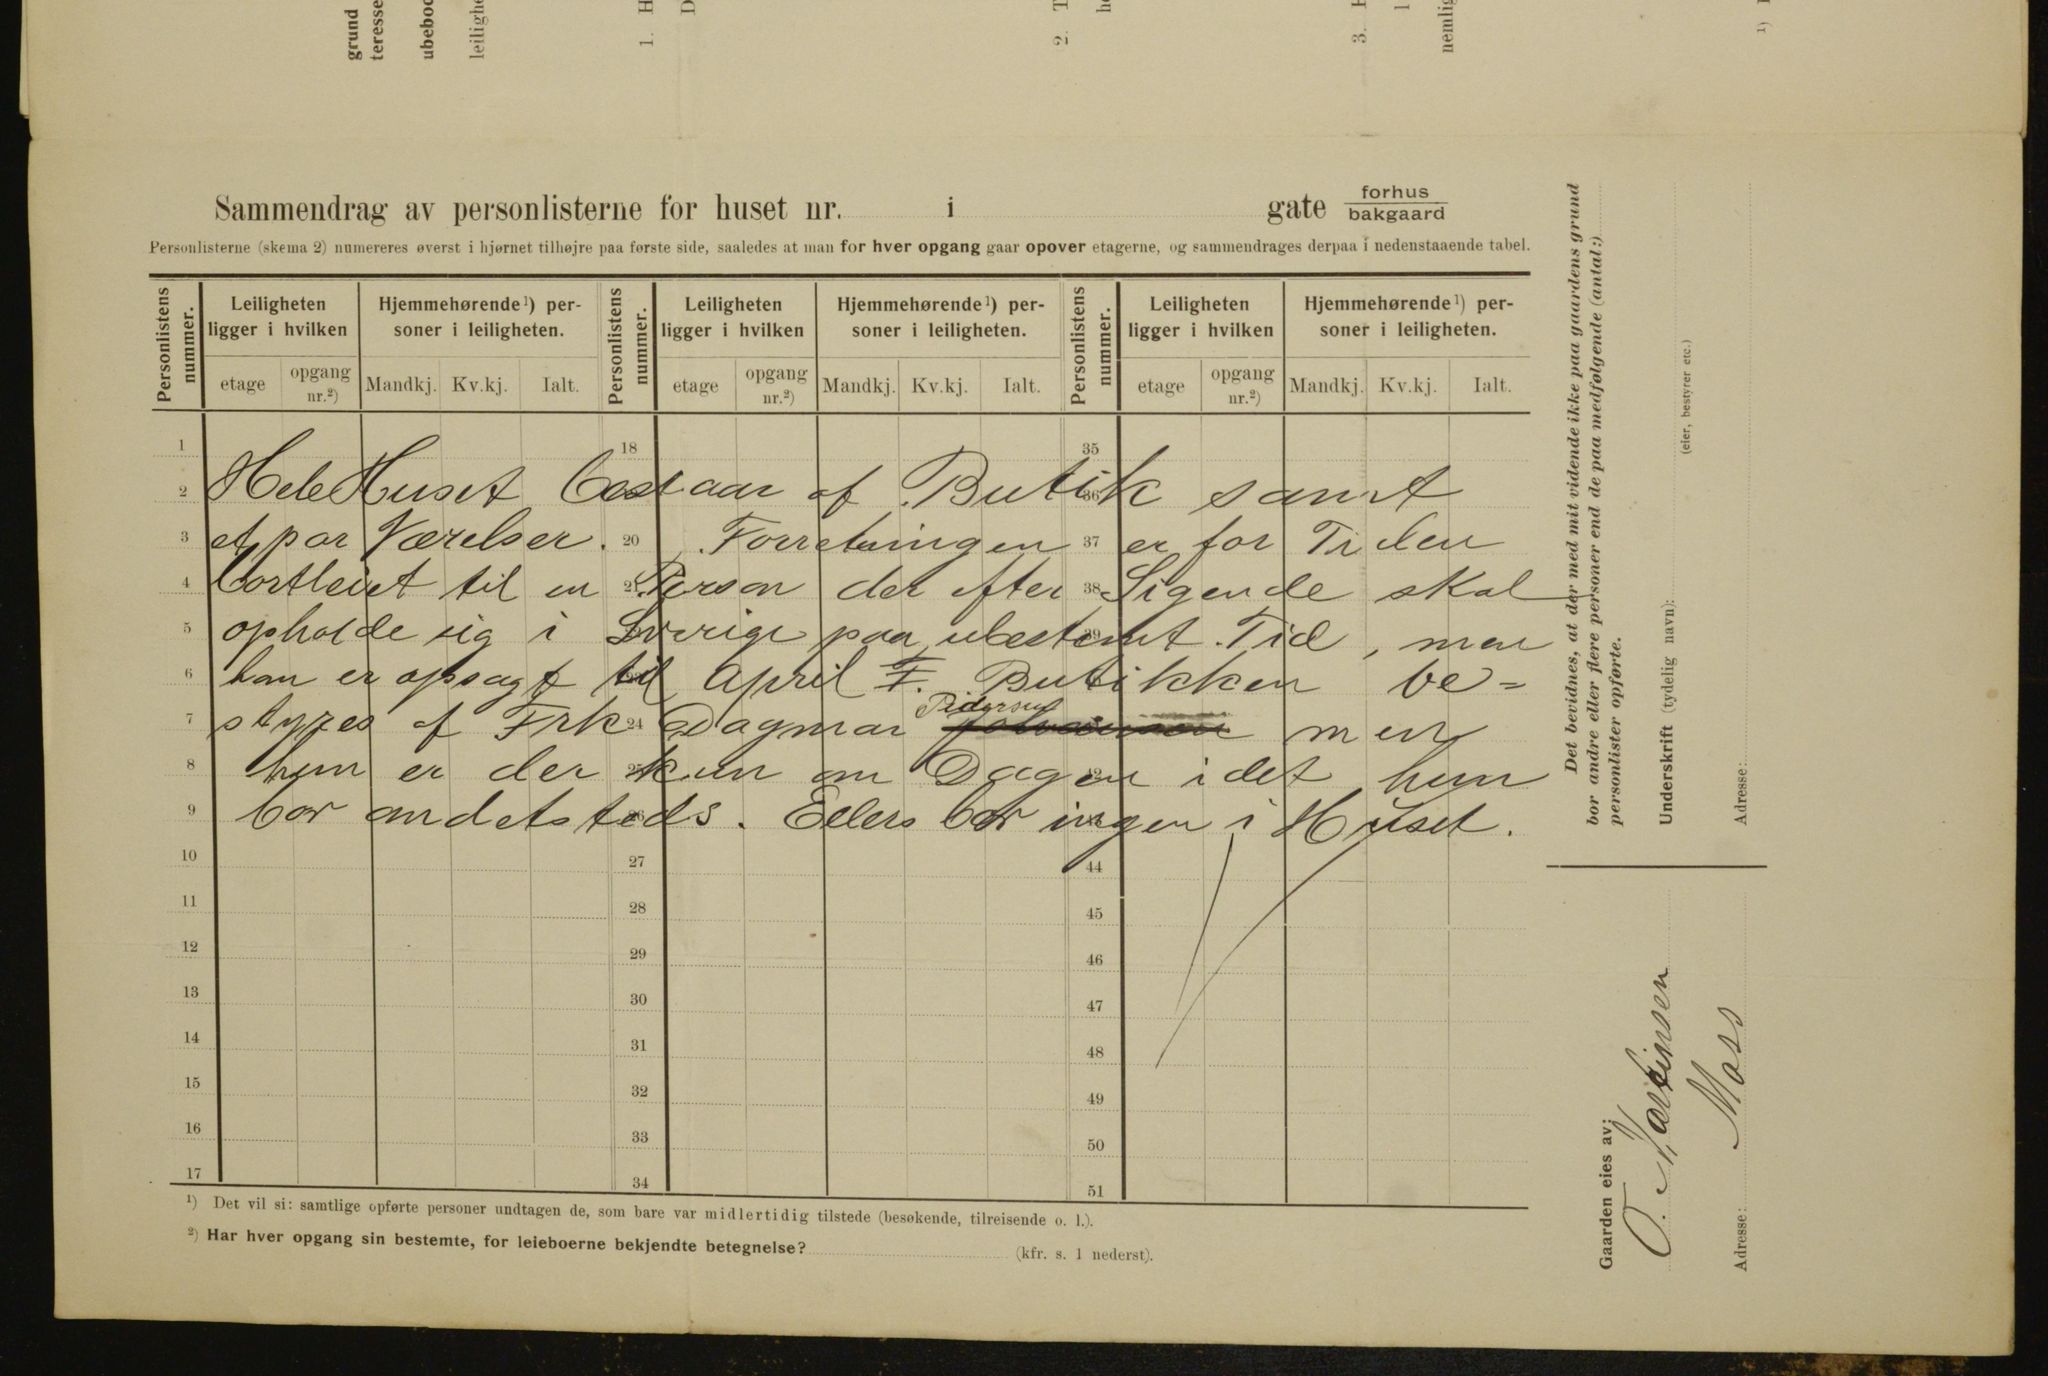 grund
teresse
ubeboe
leilighe
1. H
D
2. T
he
3. H
1
nemlig
1) I
Sammendrag av personlisterne for huset nr. i gate forhus
bakgaard
Personlisterne (skema 2) numereres øverst i hjørnet tilhøjre paa første side, saaledes at man for hver opgang gaar opover etagerne, og sammendrages derpaa i nedenstaaende tabel.
Personlistens nummer. Leiligheten ligger i hvilken Hjemmehørende¹) personer i leiligheten. Personlistens nummer. Leiligheten ligger i hvilken Hjemmehørende¹) personer i leiligheten. Personlistens nummer. Leiligheten ligger i hvilken Hjemmehørende¹) personer i leiligheten.
etage opgang nr.²) Mandkj. Kv.kj. Ialt. etage opgang nr.²) Mandkj. Kv.kj. Ialt. etage opgang nr.²) Mandkj. Kv.kj. Ialt.
1 18 35
2 Hele Huset bestaar af Butik 36 samt
3 et par Værelser. 20 Forretningen 37 er for Tiden
4 bortleiet til en 21 Person der efter 38 Sigende skal
5 opholde sig i Sverige paa ubestemt 39 Tid, men
6 han er opsagt til April F. Butikken be=
7 styres af Frk 24 Dagmar Pedersen men
8 hun er der 25 kun om Dagen 42 idet hun
9 bor andetsteds. 26 Ellers bor ingen i Huset.
10 27 44
11 28 45
12 29 46
13 30 47
14 31 48
15 32 49
16 33 50
17 34 51
¹) Det vil si: samtlige opførte personer undtagen de, som bare var midlertidig tilstede (besøkende, tilreisende o. l.).
²) Har hver opgang sin bestemte, for leieboerne bekjendte betegnelse? (kfr. s. 1 nederst).
Det bevidnes, at der med mit vidende ikke paa gaardens grund
bor andre eller flere personer end de paa medfølgende (antal:)
personlister opførte.
Underskrift (tydelig navn):
(eier, bestyrer etc.)
Adresse:
Gaarden eies av:
O. Martinsen
Adresse: Moss